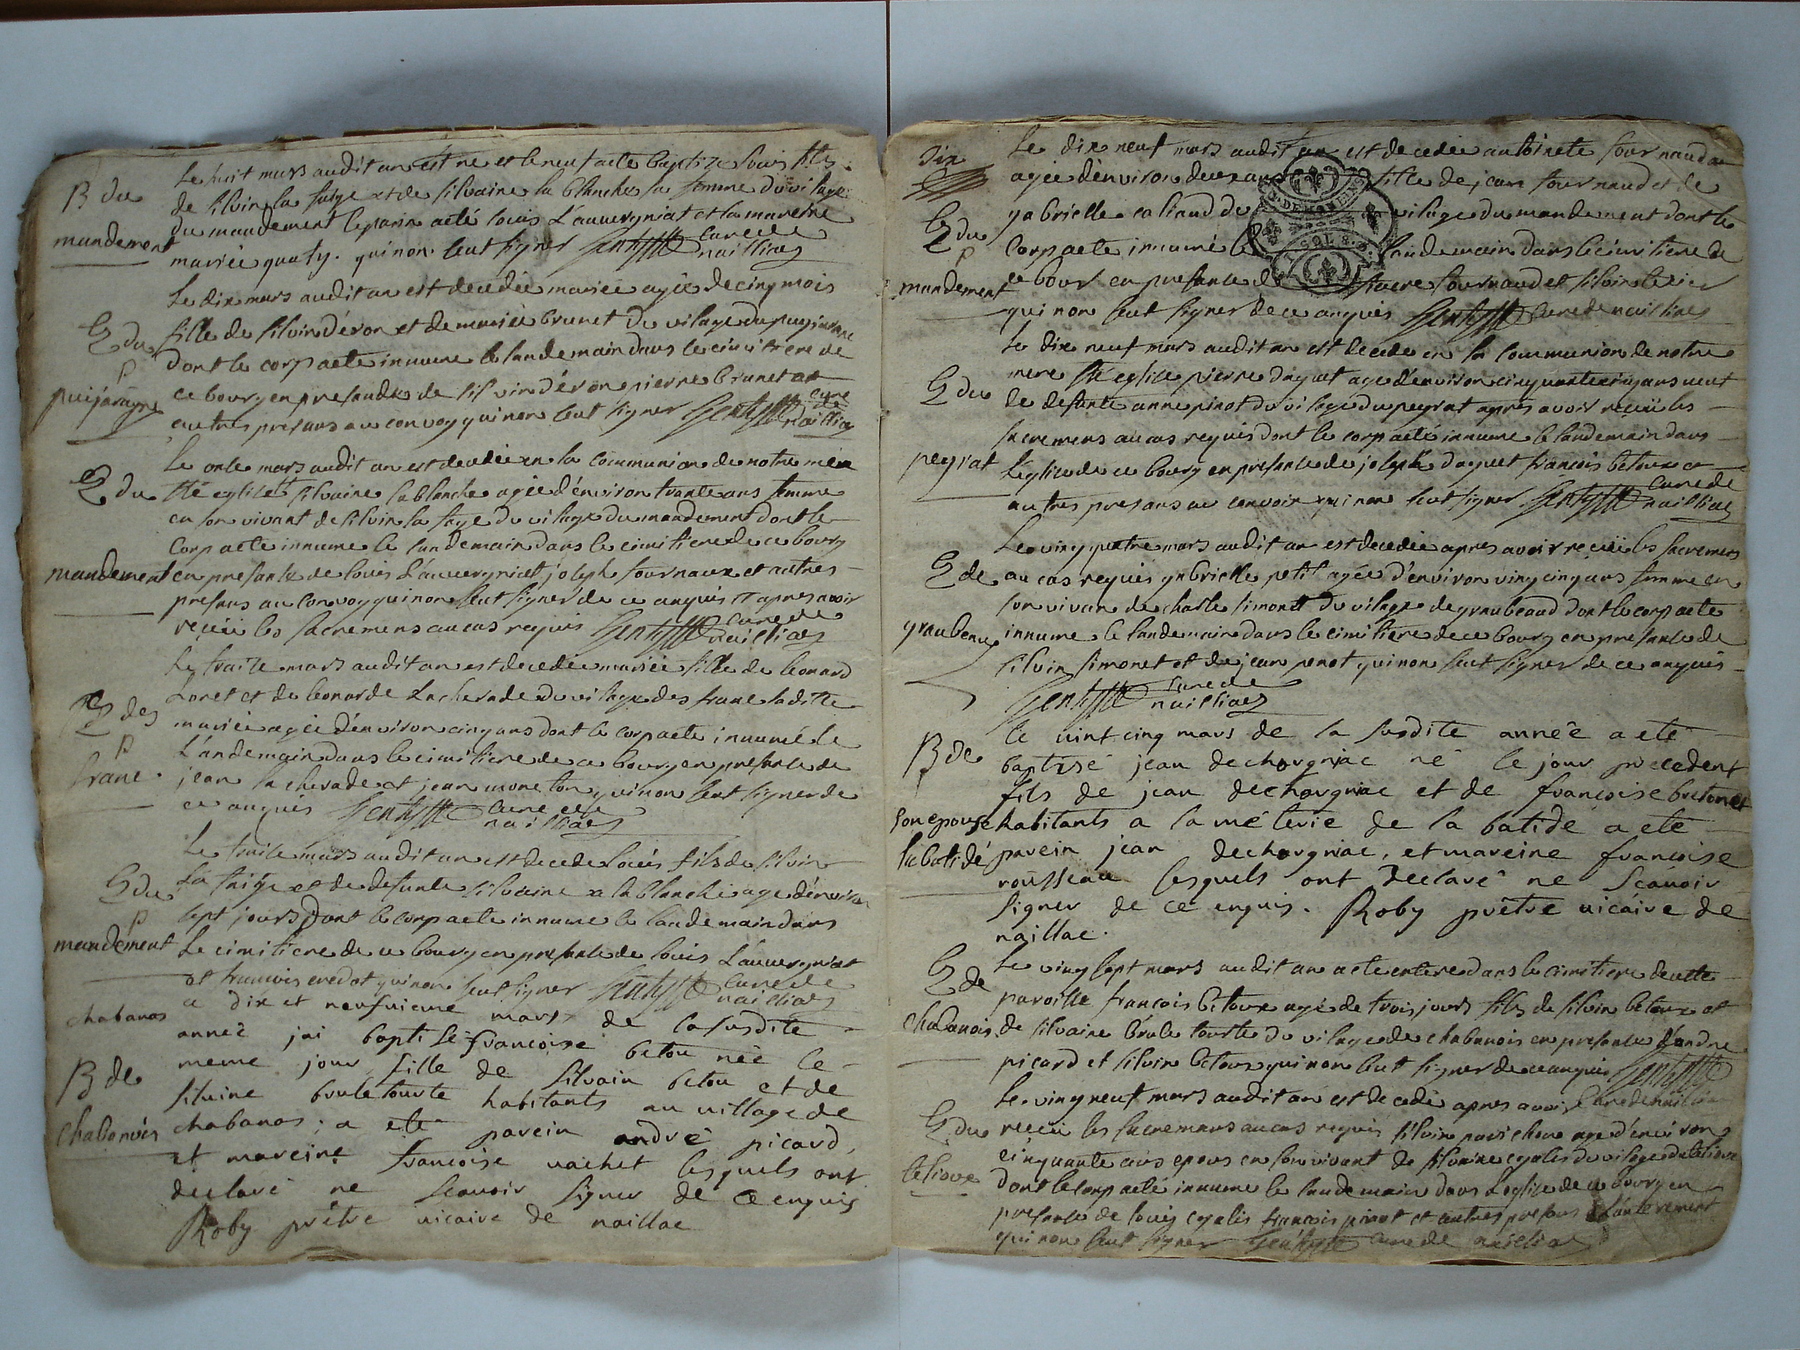 Le huit mars audit an est ne et le neuf aete baptize Louis fils
B du
de silvin la saige et de silvaine la blanche sa femme du vilage
du mandement le parin aeté louis L'auvergniat et la mareine
mandement
mariee quaty. qui non seut signer Gentytte Cure de naillac
Le dix mars audit an est decedée mariee agée de cinq mois
S du
fille de silvin déron et de mariee brunet du vilage du puyjarayne
dont le corp aete innume le landemain dans le cimitiere de
P
puijarayne
ce bourg en presandes de silvin déron pierre brunet et
autres presans au convoy qui non seut signer Gentytte cure naillac
Le onse mars audit an est decedée en la communion de notre mere
S du
ste eglise silvaine la blanche agée d'environ trante ans femme
en son vivant de silvin la saige du vilage du mandement dont le
corp aete innume le landemain dans le cimitiere de ce bourg
mandement
en presanse de louis L'auvergniat joseph fournaux et autres
presans au convoy qui non seut signer de ce anquis apres avoir
recüe les sacremens au cas requis Gentytte cure de naillac
Le traize mars audit an est decedée mariee fille de leonard
S des
Loret et de leonarde Lacherade du vilage des franc ladite
mariee agée d'environ cinq ans dont le corp aete innumé le
P
franc.
L'andemain dans le cimitiere de ce bourg en presanse de
jean la cherade et jean moneton qui non seut signer de
ce anquis Gentytte Cure de naillac
Le traise mars audit an est decede louis fils de silvin
S du
La saige et de defunte silvaine la blanche age d'environ
sept jours dont le corp aete innume le landemain dans
P
mandement
Le cimitiere de ce bourg en presanse de louis L'auvergniat
et francois credot qui non seut signer Gentytte Cure de naillac
chabanos
ce dix et neufvieme mars de la susdite
anneé jai baptisé francoise betou neé le
B de
meme jour fille de silvain betou et de
silvine brule tourte habitants au village de
chabanois
chabanos; a eté parein andré picard,
et mareine francoise vachet lesquels ont
declaré ne scauoir signer de ce enquis
Roby prêtre vicaire de naillac
Dix
Le dix neuf mars audit an est decedée antoinete fournaud
agée d'environ deux ans fille de jean fournaud et de
S du
gabrielle caliaud du vilage du mandement dont le
corp aete innumé le landemain dans le cimitiere de
P
mandement
ce bourg en presanse de fournaud et silvin
qui non seut signer de ce anquis Gentytte Cure de naillac
Le dix neuf mars audit an est decede en la communion de notre
mere ste eglise pierre daguet age d'environ cinquante cinq ans veuf
S du
de defunte anne pinot du vilage du peyrat apres avoir recüe les
sacremens au cas requis dont le corp aeté innume le landemain dans
peyrat
L'eglise de ce bourg en presanse de joseph daguet francois betoux et
autres presans au convoir qui non seut signer Gentytte cure de naillac
Le ving quatre mars audit an est decedée apres avoir recüe les sacremens
S de
au cas requis gabrielle petit agée d'environ ving cinq ans femme en
son vivan de charle simonet du vilage de graubeaud dont le corp aete
graubeau
innume le landemain dans le cimitiere de ce bourg en presanse de
silvin simonet et de jean penot qui non seut signer de ce anquis
Gentytte cure de naillac
le vint cinq mars de la susdite anneé a eté
B de
baptisé jean dechorgniac né le jour precedent
fils de jean dechorgniac et de francoise breton et
son epouse habitants a la méterie de la batide a eté
la batidé
parein jean dechorgniac, et mareine francoise
rousseau lesquels ont declaré ne scauoir
signer de ce enquis. Roby prêtre vicaire de
naillac.
Le ving sept mars audit an a ete entere dans le cimitiere de cette
S de
paroisse francois betoux agé de trois jours fils de silvin betoux et
chabanois
de silvaine brule tourte du vilage de chabanois en presanse d'andre
picard et silvin betoux qui non seut signer de ce anquis Gentytte
Cure de naillac
Le ving neuf mars audit an est decedé apres avoir
S du
recüe les sacremans au cas requis silvin age d'environ
cinquante ans epous en son vivant de silvaine cyalis du vilage
dont le corp aeté innume le landemain dans L'eglise de ce bourg en
presanse de louis cyalis francois pinot et autres presans a L'anterement
qui non seut signer Gentytte cure de naillac